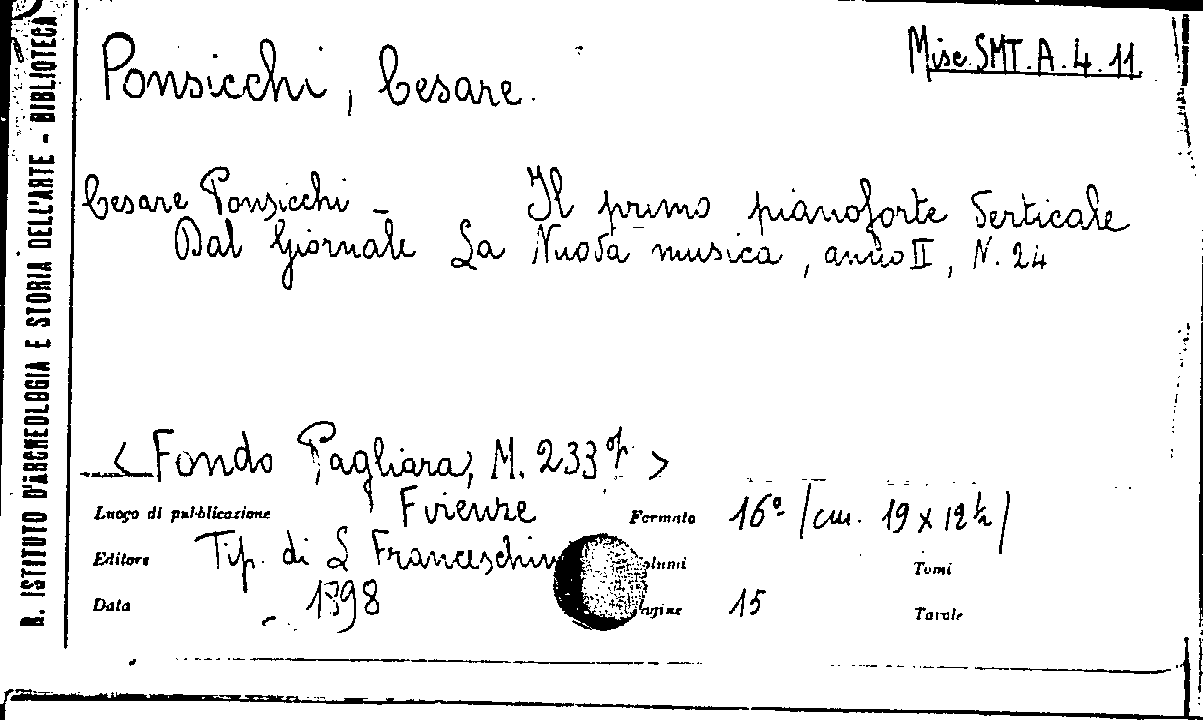 Misc SMT. A. 4. 11
Ponsicchi, Cesare.
Cesare Ponsicchi – Il primo pianoforte verticale
Dal Giornale La Nuova musica, anno II, N. 24
< Fondo Pagliara, M. 233 >
Luogo di pubblicazione Firenze Formato 16º (cm. 19 x 12 ½)
Editore Tip. di L Franceschini Tomi
Data 1898 15 Tavole
R. ISTITUTO D'ARCHEOLOGIA E STORIA DELL'ARTE - BIBLIOTECA